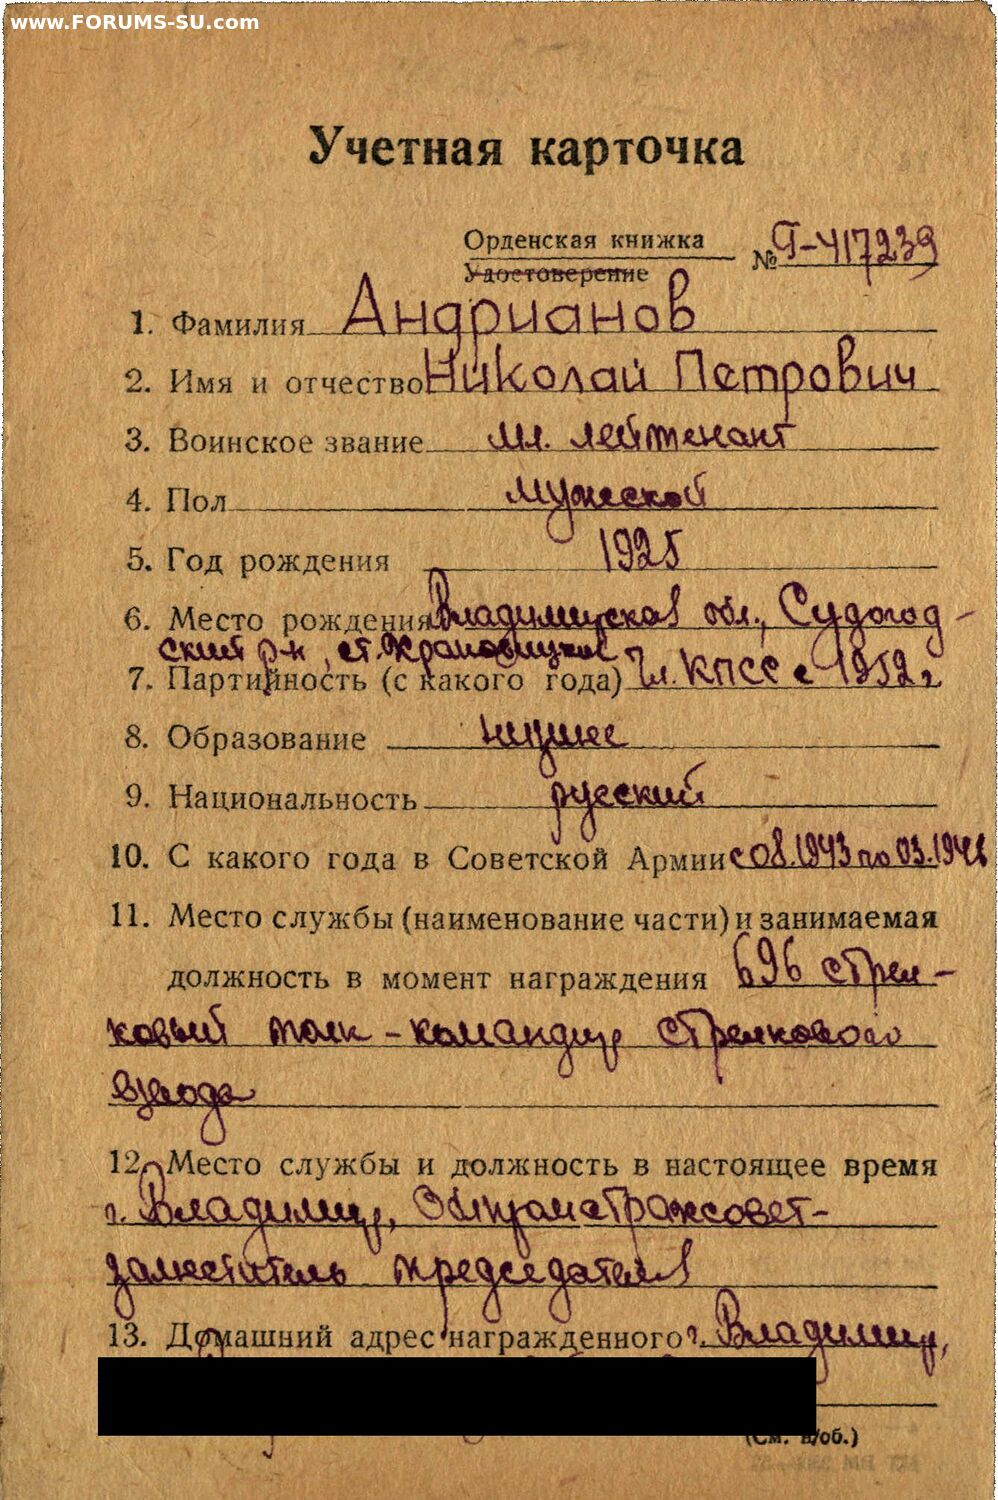 www.FORUMS-SU.com
Учетная карточка
Орденская книжка
Удостоверение
№ Г-417239
1. Фамилия Андрианов
2. Имя и отчество Николай Петрович
3. Воинское звание мл. лейтенант
4. Пол мужской
5. Год рождения 1925
6. Место рождения Владимирская обл., Судогод-
ский р-н, ст.
7. Партийность (с какого года) Чл. КПСС с 1952 г
8. Образование высшее
9. Национальность русский
10. С какого года в Советской Армии с 08.1943 по 03.
11. Место службы (наименование части) и занимаемая
должность в момент награждения 696 стрел-
ковый полк - командир стрелкового
взвода
12. Место службы и должность в настоящее время
г. Владимир,
заместитель председателя
13. Домашний адрес награжденного г. Владимир,
(См. н/об.)